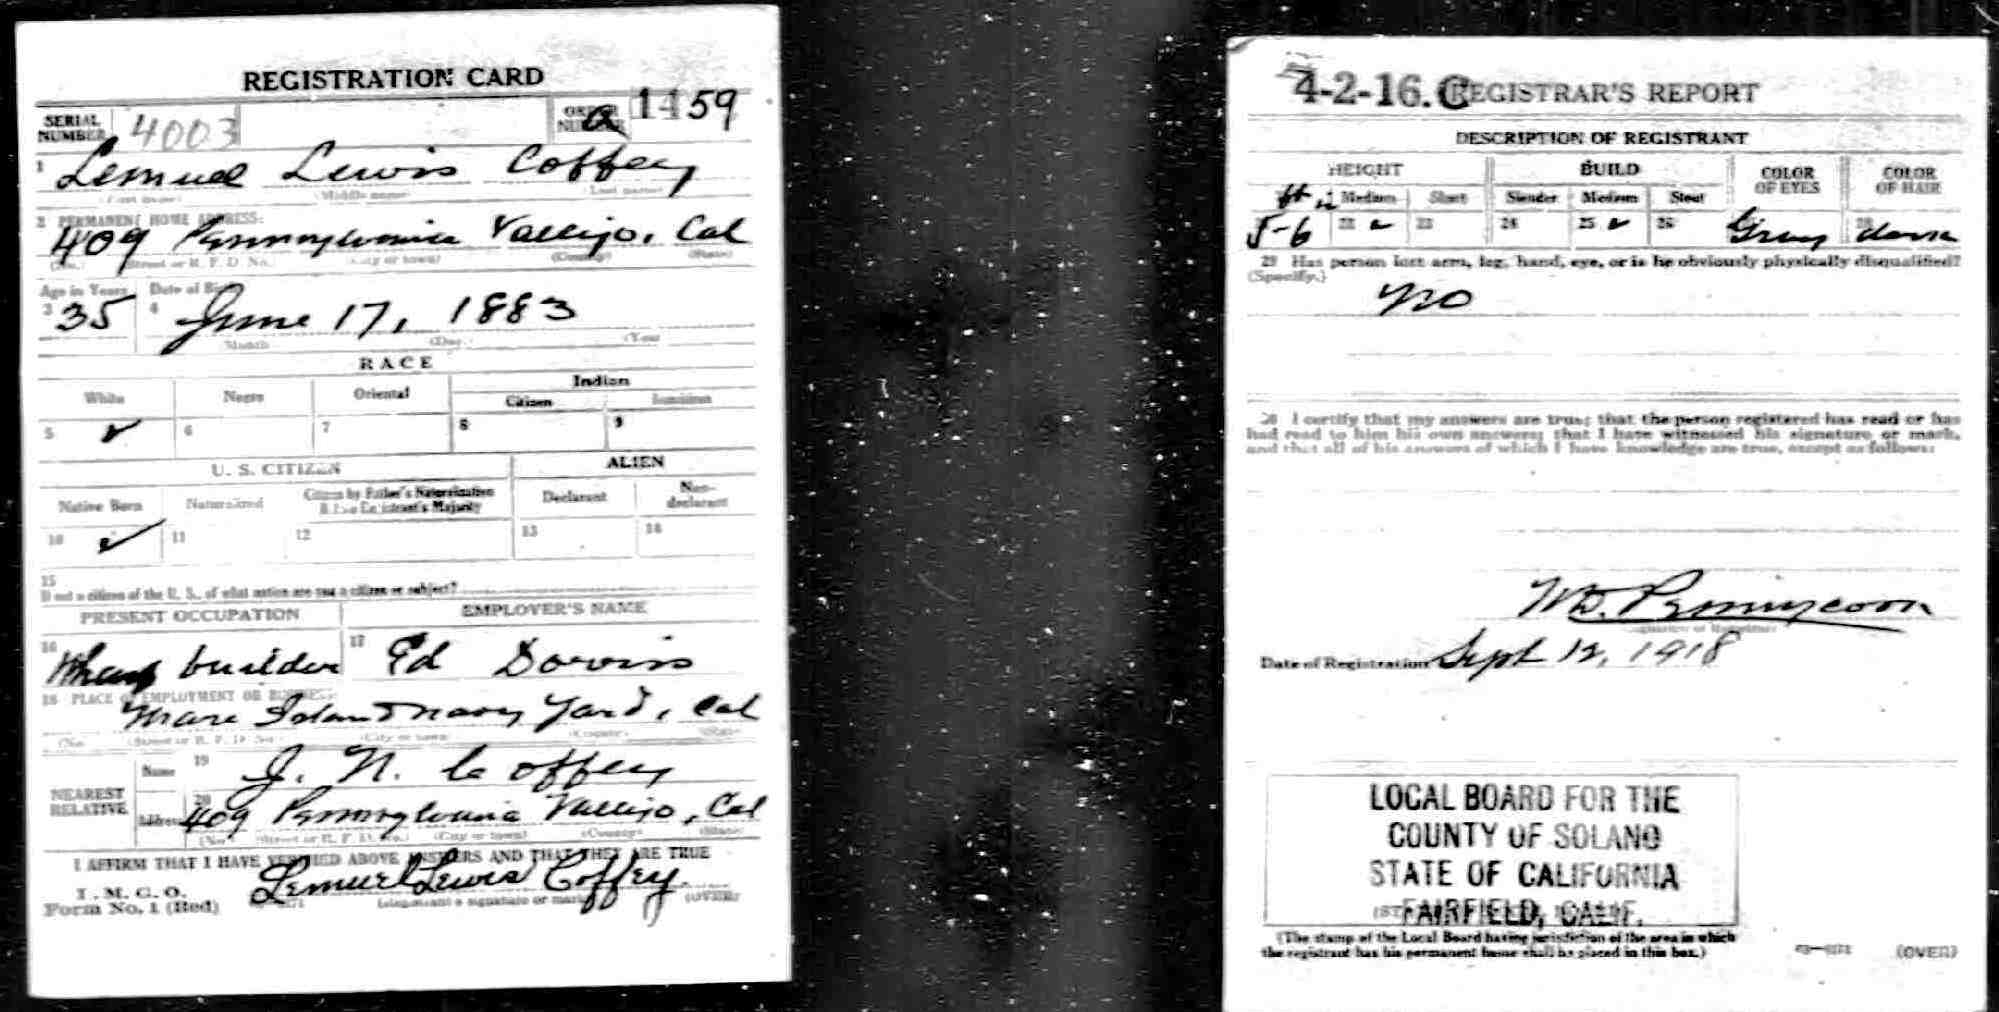 REGISTRATION CARD
SERIAL NUMBER 4003 ORDER NUMBER a 1459
1 Lemuel Lewis Coffey
(First name) (Middle name) (Last name)
2 PERMANENT HOME ADDRESS:
409 Pennsylvania Vallejo, Cal
(No.) (Street or R. F. D. No.) (City or town) (County) (State)
Age in Years Date of Birth
3 35 4 June 17, 1883
(Month) (Day) (Year)
RACE
White Negro Oriental Indian
Citizen Noncitizen
5 ✓ 6 7 8 9
U. S. CITIZEN ALIEN
Native Born Naturalized Citizen by Father's Naturalization Before Registrant's Majority Declarant Non-declarant
10 ✓ 11 12 13 14
15
If not a citizen of the U. S., of what nation are you a citizen or subject?
PRESENT OCCUPATION EMPLOYER'S NAME
16 Wharf builder 17 Ed
18 PLACE OF EMPLOYMENT OR BUSINESS:
Mare Island Navy Yard, Cal
(No.) (Street or R. F. D. No.) (City or town) (County) (State)
NEAREST RELATIVE
Name 19 J. N. Coffey
Address 20 409 Pennsylvania Vallejo, Cal
(No.) (Street or R. F. D. No.) (City or town) (County) (State)
I AFFIRM THAT I HAVE VERIFIED ABOVE ANSWERS AND THAT THEY ARE TRUE
P. M. G. O.
Form No. 1 (Red) Lemuel Lewis Coffey
(Registrant's signature or mark) (OVER)
4-2-16. C REGISTRAR'S REPORT
DESCRIPTION OF REGISTRANT
HEIGHT BUILD COLOR OF EYES COLOR OF HAIR
ft. in Medium Short Slender Medium Stout
5-6 22 ✓ 23 24 25 ✓ 26 Gray 28
29 Has person lost arm, leg, hand, eye, or is he obviously physically disqualified?
(Specify.)
no
30 I certify that my answers are true; that the person registered has read or has
had read to him his own answers; that I have witnessed his signature or mark,
and that all of his answers of which I have knowledge are true, except as follows:
W. D. Pennycook
(Signature of Registrar)
Date of Registration Sept 12, 1918
LOCAL BOARD FOR THE
COUNTY OF SOLANO
STATE OF CALIFORNIA
FAIRFIELD, CALIF.
(The stamp of the Local Board having jurisdiction of the area in which
the registrant has his permanent home shall be placed in this box.)
(OVER)